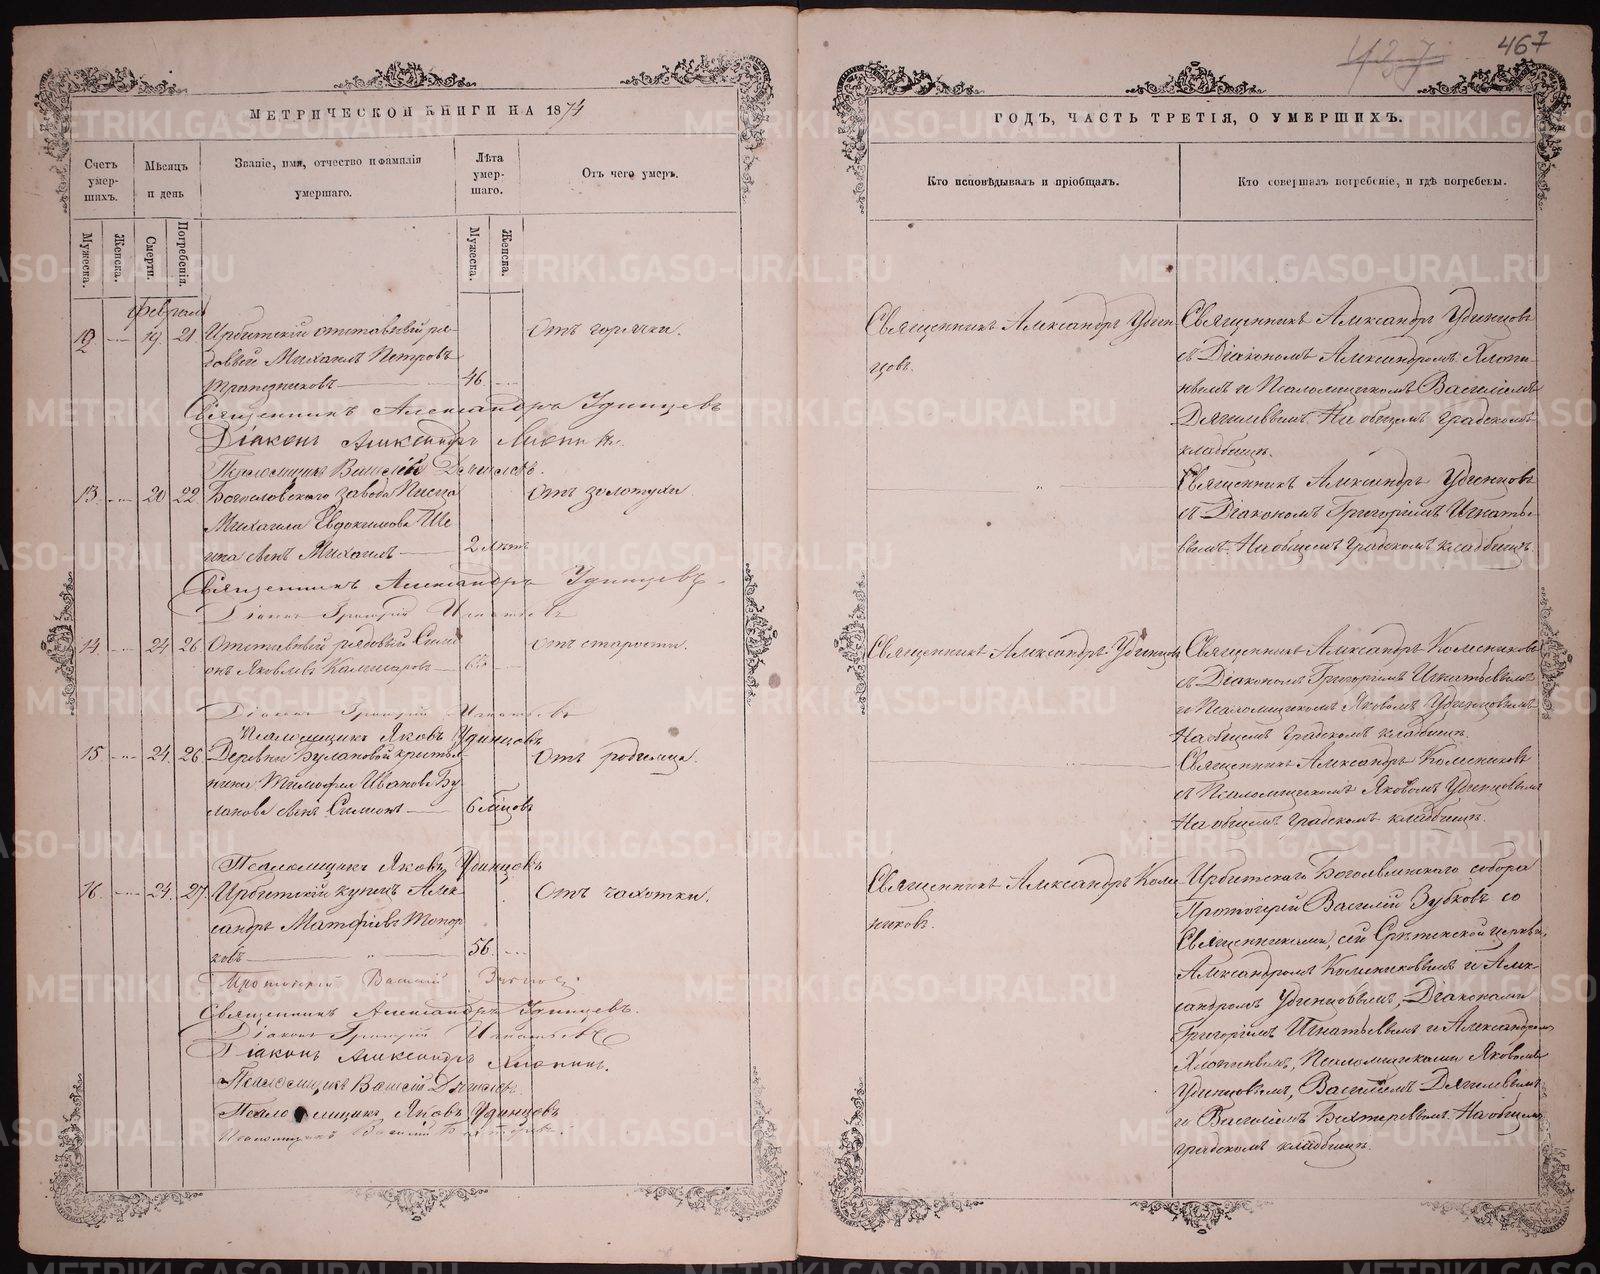 467
МЕТРИЧЕСКОЙ КНИГИ НА 1874
Счетъ умер-шихъ.
Мѣсяцъ и день
Званіе, имя, отчество и фамилія умершаго.
Лѣта умер-шаго.
Отъ чего умеръ.
Мужеска.
Женска.
Смерти.
Погребенія.
Мужеска.
Женска.
Февраль
12 19. 21 Ирбитскій отставный ря-
довый Михаилъ Петровъ
Трапезниковъ 46
Отъ горячки.
Священникъ Александръ Удинцевъ
Діаконъ Александръ Хлопинъ.
Псаломщикъ Василій Дягилевъ.
13. 20 22 Богословскаго завода
Михаила Евдокимова Ше-
сынъ Михаилъ 2 лѣтъ
Отъ золотухи
Священникъ Александръ Удинцевъ
Діаконъ Григорій Игнатьевъ
14. 24 26 Отставный рядовый Сими-
онъ Яковлевъ
Отъ старости.
Діаконъ Григорій Игнатьевъ
Псаломщикъ Яковъ Удинцовъ
15 24. 26 Деревни Булановой крестья-
нина Тимофея Иванова Бу-
ланова сынъ Симионъ 6 мѣсцовъ
Отъ родимца.
Псаломщикъ Яковъ Удинцовъ
16. 24. 27. Ирбитскій купецъ Алек-
сандръ Матфіевъ Топор-
ковъ 56.
Отъ чахотки.
Протоіерей Василій Зубковъ
Священникъ Александръ Удинцевъ.
Діаконъ Григорій Игнатьевъ
Діаконъ Александръ Хлопинъ.
Псаломщикъ Василій Дягилевъ.
Псаломщикъ Яковъ Удинцовъ
Псаломщикъ Василій Бехтеревъ.
ГОДЪ, ЧАСТЬ ТРЕТІЯ, О УМЕРШИХЪ.
Кто исповѣдывалъ и пріобщалъ.
Кто совершалъ погребеніе, и гдѣ погребены.
Священникъ Александръ Удин-
цовъ.
Священникъ Александръ Удинцовъ
съ Діакономъ Александромъ Хлопи-
нымъ и Псаломщикомъ Василіемъ
Дягилевымъ. На общемъ градскомъ
кладбищѣ.
Священникъ Александръ Удинцовъ
съ Діакономъ Григоріемъ Игнатье-
вымъ. На общемъ градскомъ кладбищѣ.
Священникъ Александръ Удинцовъ
Священникъ Александръ Колесниковъ
съ Діакономъ Григоріемъ Игнатьевымъ
и Псаломщикомъ Яковомъ Удинцовымъ
На общемъ градскомъ кладбищѣ.
Священникъ Александръ Колесниковъ
съ Псаломщикомъ Яковомъ Удинцовымъ
На общемъ градскомъ кладбищѣ.
Священникъ Александръ Колес-
никовъ.
Ирбитскаго Богоявленскаго собора
Протоіерей Василій Зубковъ со
Священниками, сей Срѣтенской церкви,
Александромъ Колесниковымъ и Алек-
сандромъ Удинцовымъ, Діаконами
Григоріемъ Игнатьевымъ и Александромъ
Хлопинымъ, Псаломщиками Яковомъ
Удинцовымъ, Василіемъ Дягилевымъ
и Василіемъ Бехтеревымъ. На общемъ
градскомъ кладбищѣ.
METRIKI.GASO-URAL.RU